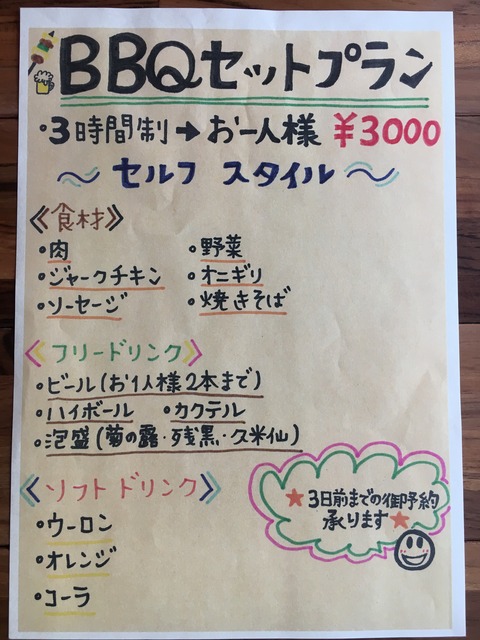 BBQセットプラン
・3時間制→お一人様 ¥3000
〜セルフ スタイル〜
《食材》
・肉 ・野菜
・ジャークチキン ・オニギリ
・ソーセージ ・焼きそば
《フリードリンク》
・ビール(お1人様2本まで)
・ハイボール ・カクテル
・泡盛(菊の露・残黒・久米仙)
《ソフトドリンク》
・ウーロン
・オレンジ
・コーラ
★3日前までの御予約
承ります★